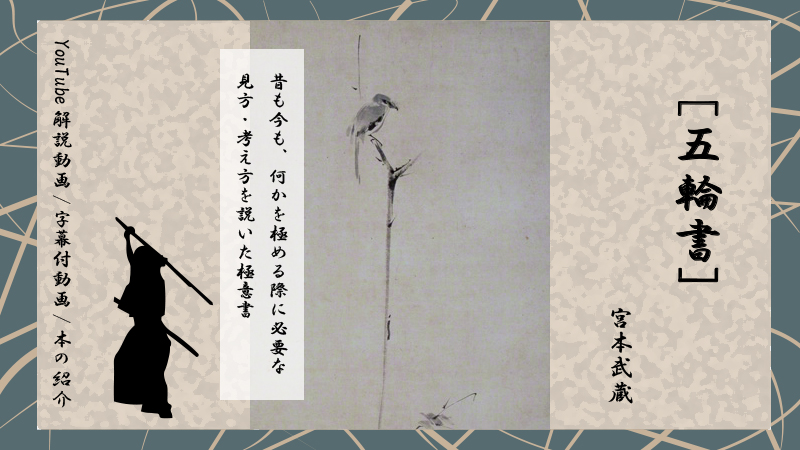 ［五輪書］
宮本武蔵
昔も今も、何かを極める際に必要な
見方・考え方を説いた極意書
YouTube 解説動画／字幕付動画／本の紹介